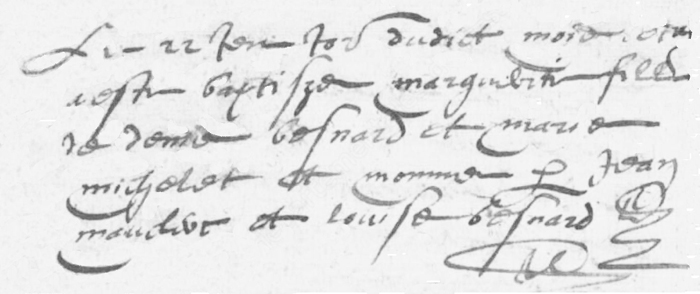 Le 22 Jen Jor dudict mois et an
a este baptisze marguerite fille
de denis besnard et marie
michelet et nommee p Jean
mauduit et louise besnard